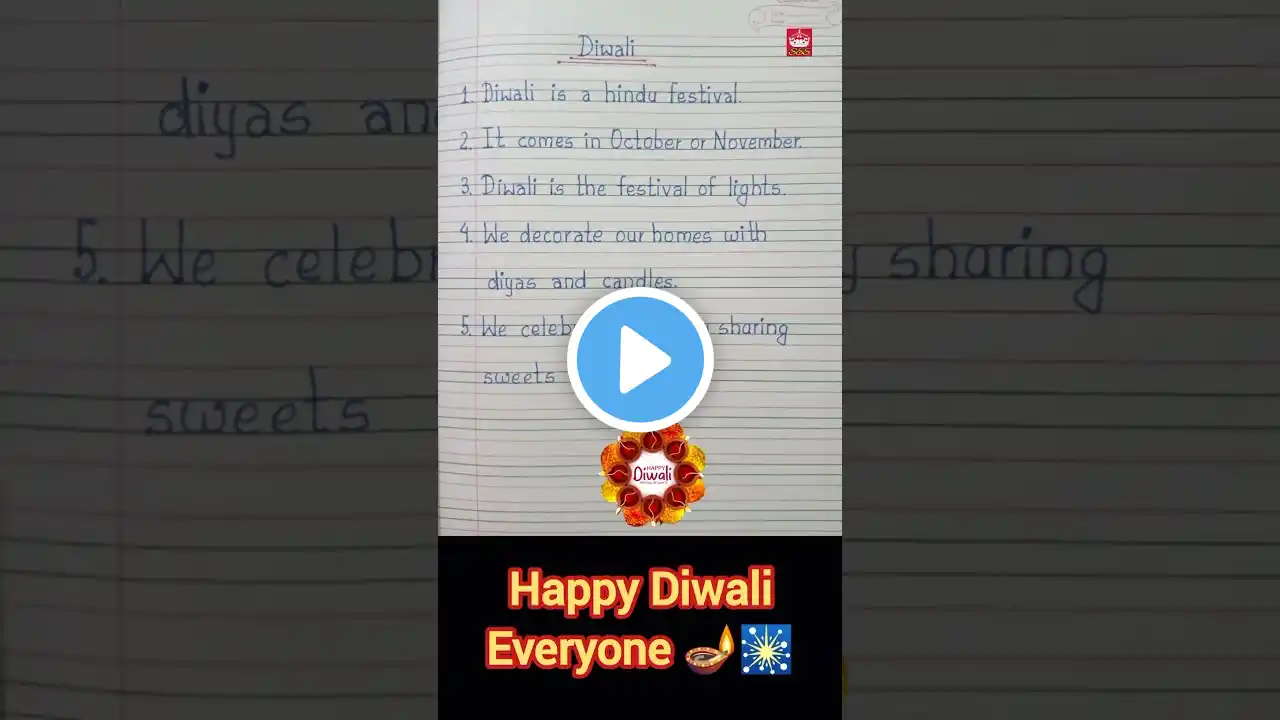 Diwali
1. Diwali is a hindu festival.
2. It comes in October or November.
3. Diwali is the festival of lights.
4. We decorate our homes with
diyas and candles.
5. We celeb sharing
sweets
S&S
HAPPY
Diwali
Happy Diwali
Everyone
diyas an
5. We celeb sharing
sweets